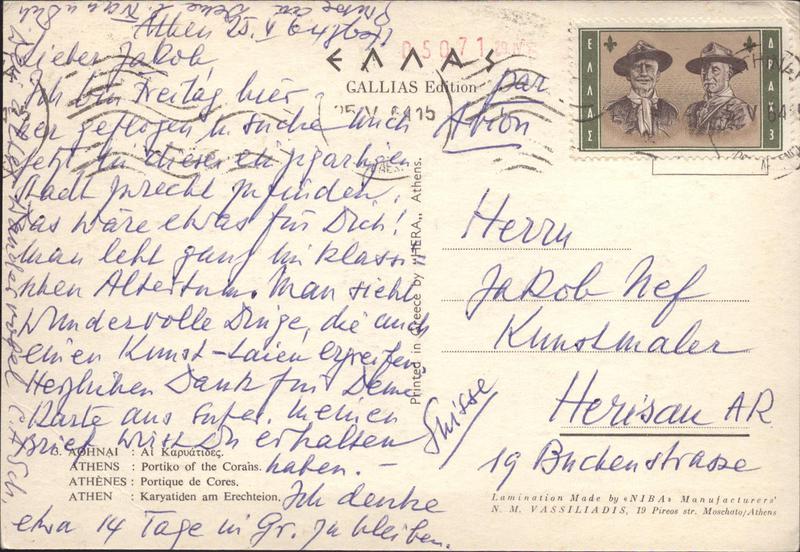 Athen 25. V 64
Lieber Jakob,
Ich bin Freitag hier-
her geflogen u. suche mich
jetzt in dieser einzigartigen
Stadt zurecht zu finden.
Das wäre etwas für Dich!
Man lebt ganz im klassi-
schen Altertum. Man sieht
wundervolle Dinge, die auch
einen Kunst-Laien ergreifen.
Herzlichen Dank für Deine
Karte aus. Meinen
Brief wirst Du erhalten
haben. –
Ich denke
etwa 14 Tage in Gr. zu bleiben.
ΑΘΗΝΑΙ : Αἱ Καρυάτιδες.
ATHENS : Portiko of the Coraïns.
ATHÈNES : Portique de Cores.
ATHEN : Karyatiden am Erechteion.
ΕΛΛΑΣ
GALLIAS Edition
05071
25 V 64 15
Printed in Greece by "HERA,, Athens.
par
Avion
ΕΛΛΑΣ
ΔΡΑΧ 3
Herrn
Jakob Nef
Kunstmaler
Herisau AR
19 Buchenstrasse
Suisse
Lamination Made by «NIBA» Manufacturers'
N. M. VASSILIADIS, 19 Pireos str. Moschato/Athens